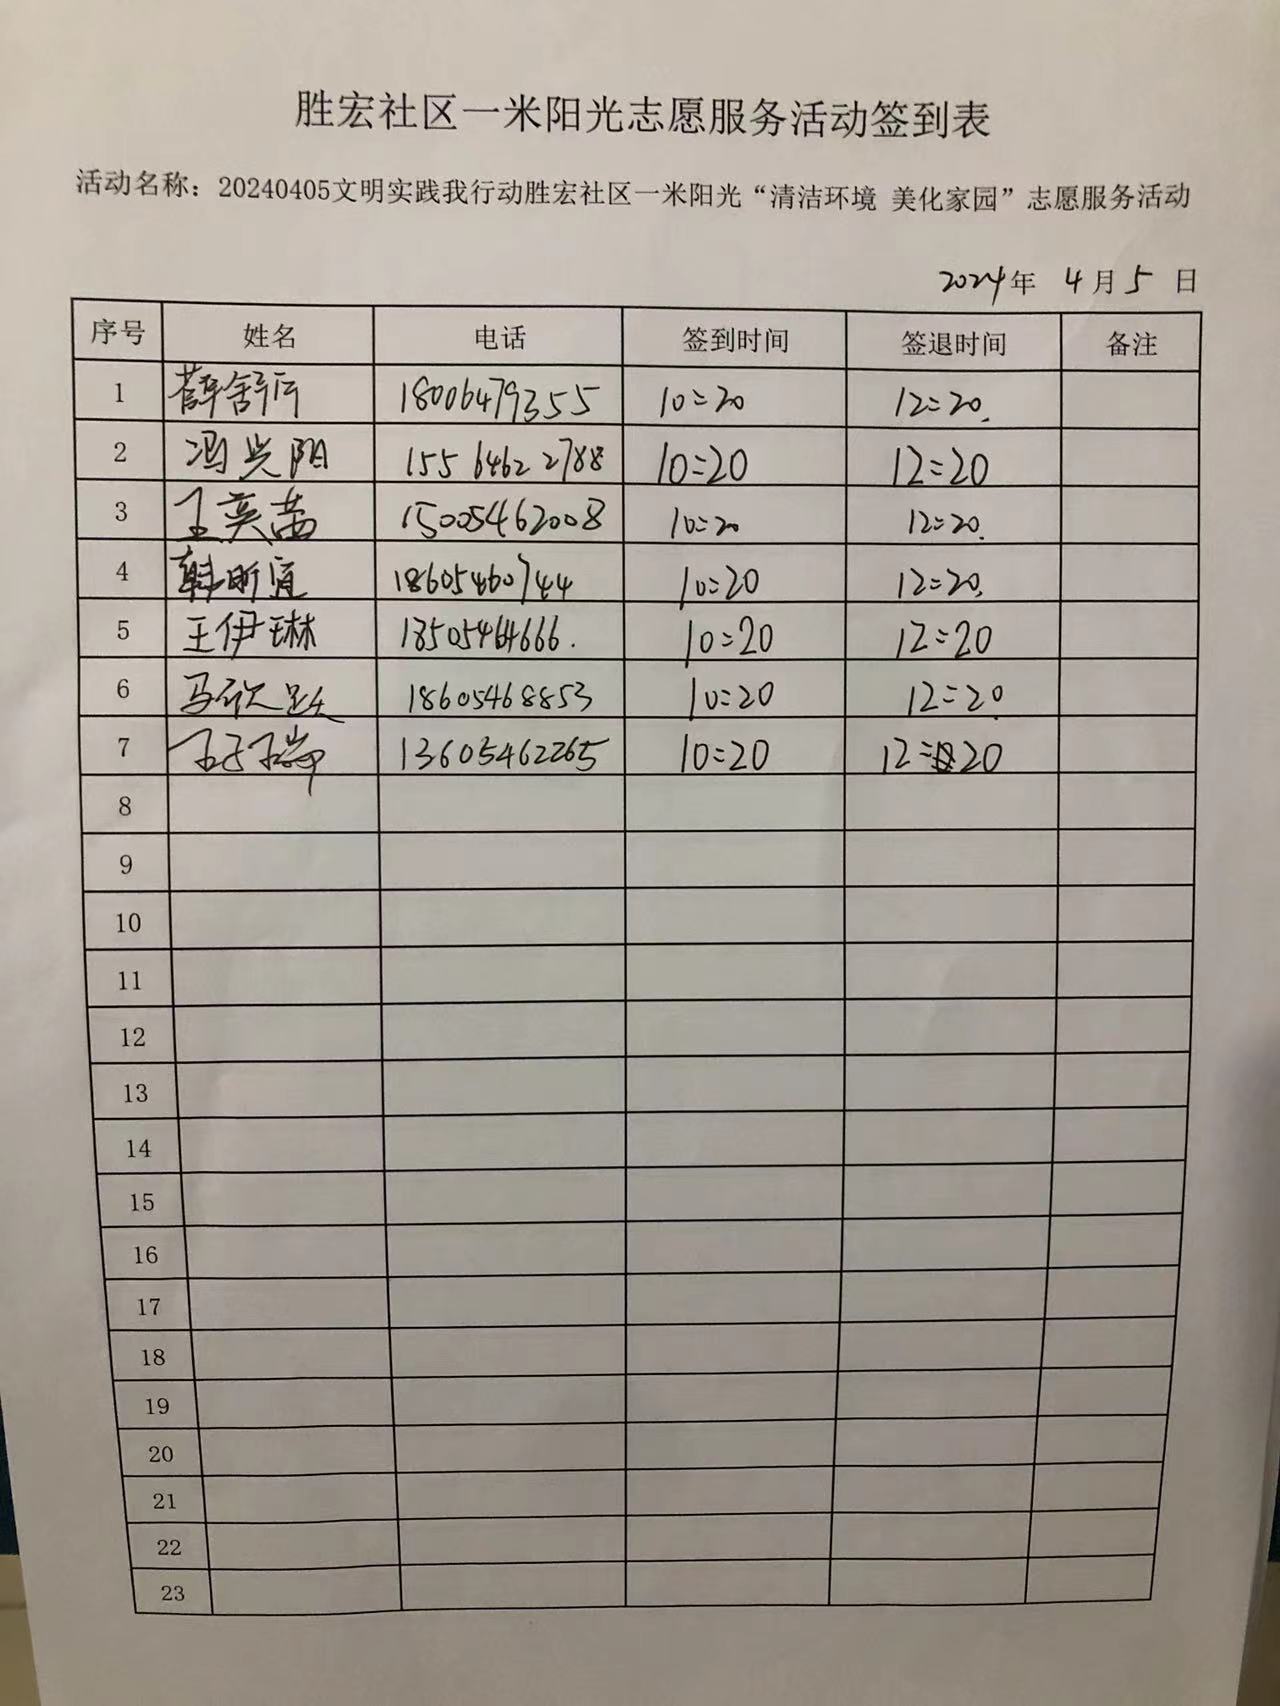 胜宏社区一米阳光志愿服务活动签到表
活动名称：20240405文明实践我行动胜宏社区一米阳光“清洁环境 美化家园”志愿服务活动
2024年 4月5日
序号 姓名 电话 签到时间 签退时间 备注
1 薛舒 18006479355 10:20 12:20.
2 冯兴阳 15564622788 10:20 12:20
3 王奕茜 15005462008 10:20 12:20.
4 韩昕宜 18605460744 10:20 12:20.
5 王伊琳 18505464666. 10:20 12:20
6 马欣 18605468853 10:20 12:20
7 13605462265 10:20 12:20
8
9
10
11
12
13
14
15
16
17
18
19
20
21
22
23